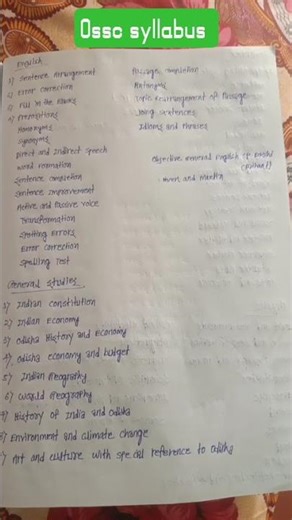 Ossc syllabus
English
1) Sentence Arrangement
2) Error Correction
3) Fill in the Blanks
4) Prepositions
Homonyms
Synonyms
Direct and Indirect Speech
Word Formation
Sentence Completion
Sentence Improvement
Active and Passive Voice
Transformation
Spotting Errors
Error Correction
Spelling Test
Passage Completion
Antonyms
Topic Rearrangement of Passage
Joining Sentences
Idioms and Phrases
Objective General English
General Studies
1) Indian Constitution
2) Indian Economy
3) Odisha History and Economy
4) Odisha economy and budget
5) Indian Geography
6) World Geography
7) History of India and Odisha
8) Environment and climate change
9) Art and culture with special reference to Odisha